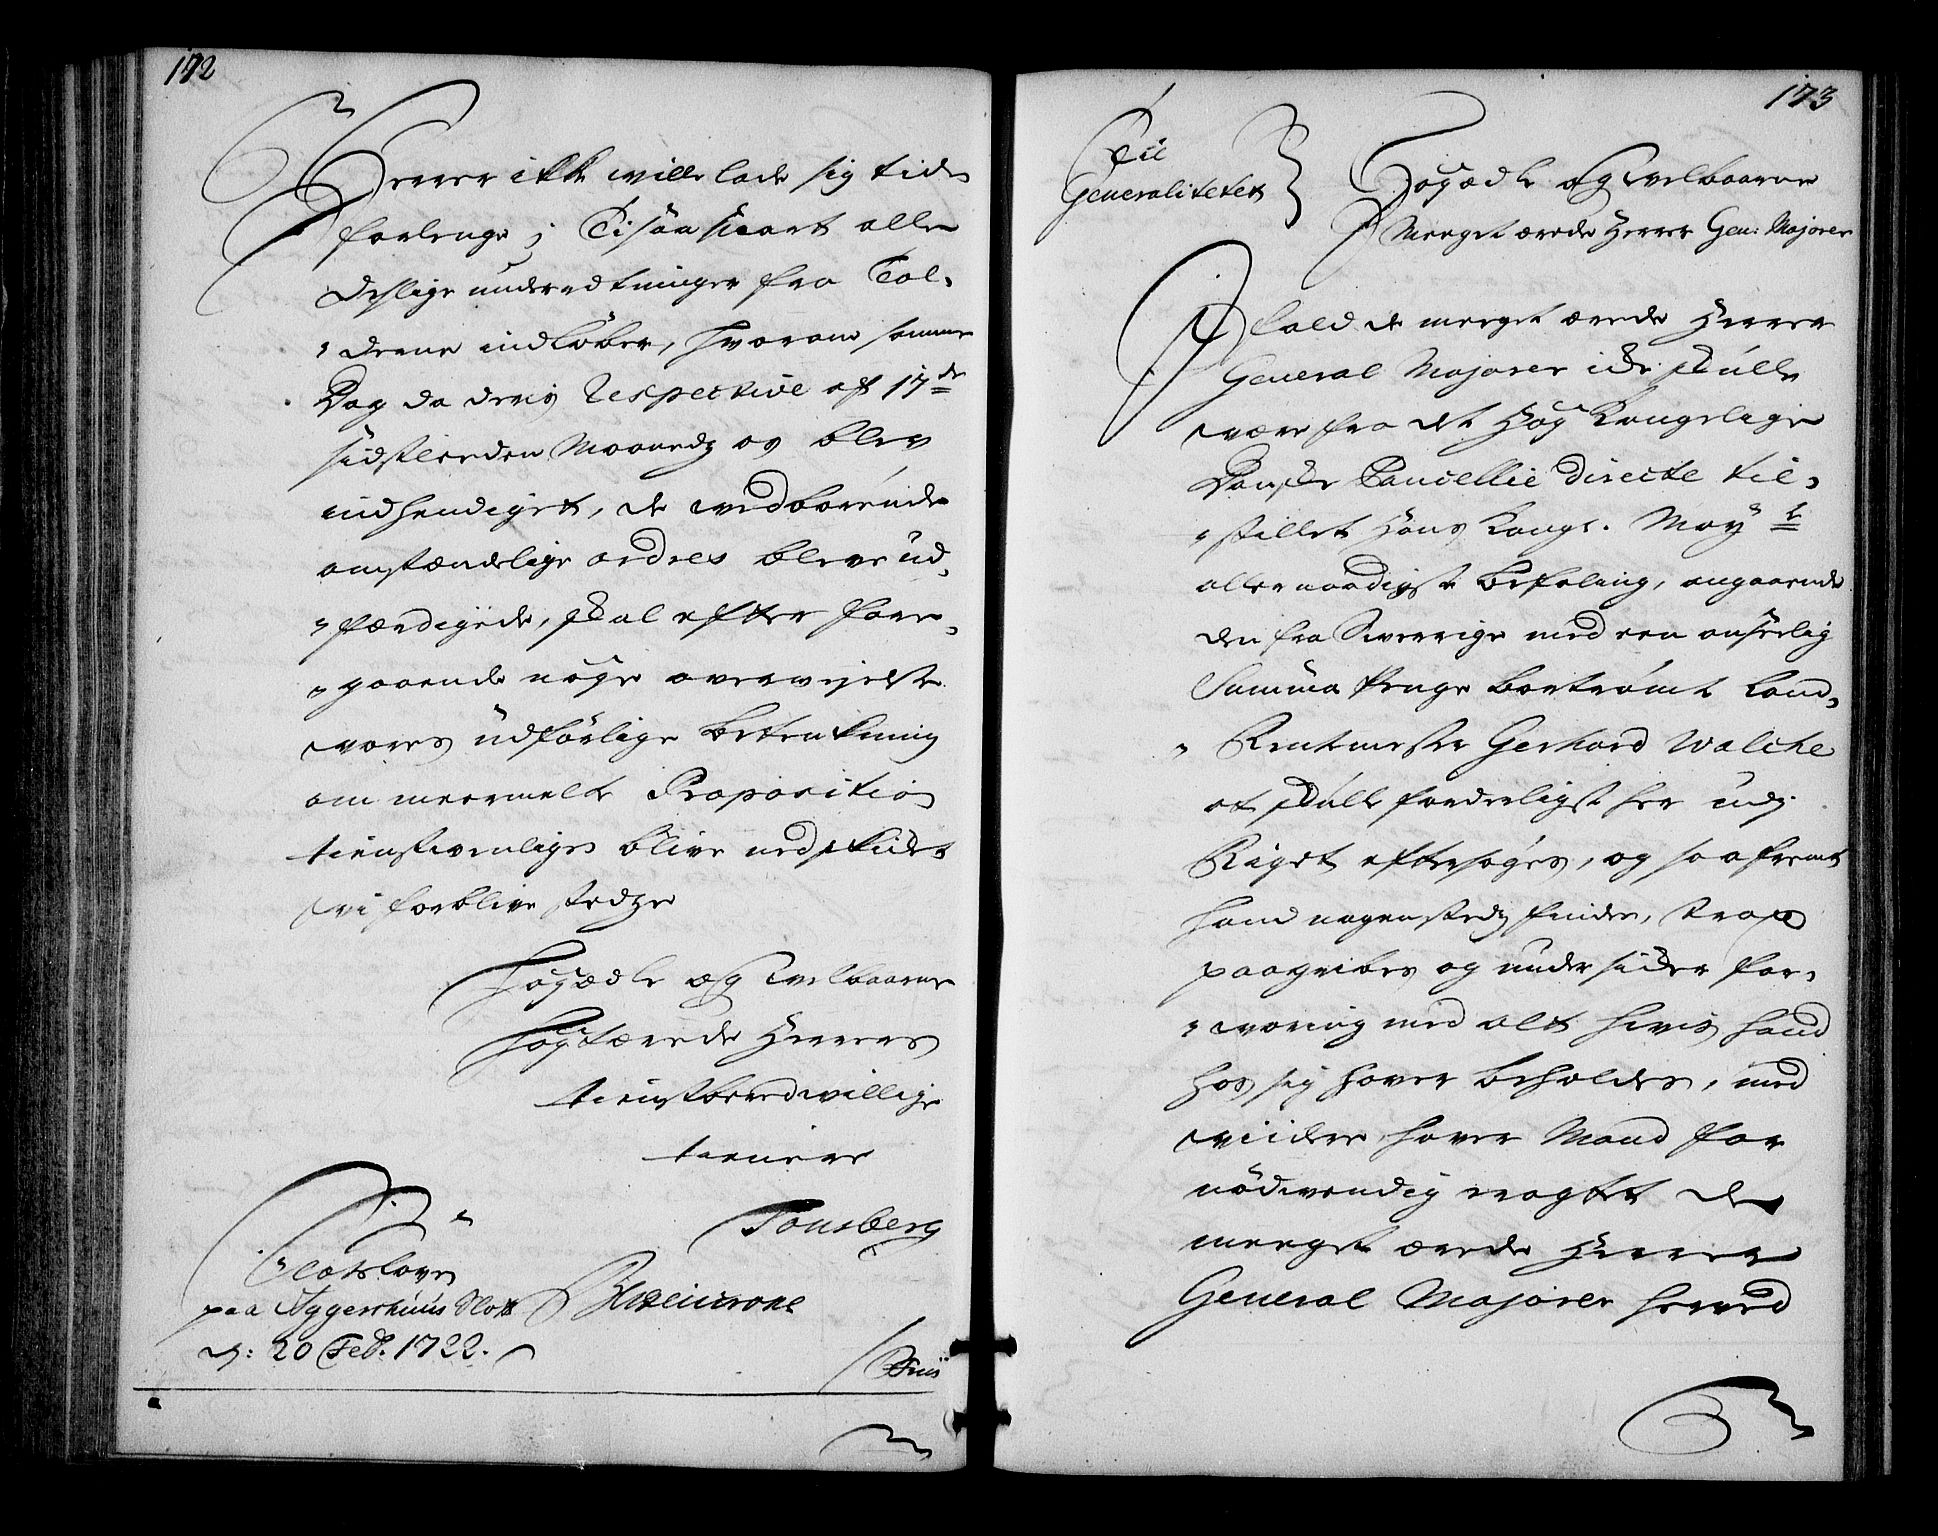 172
Herrer ikke wille lade sig tiden
forlenge; Ei saa snart alle
deslige underretninger fra Tol-
derne indløber, hvorom samme
Dag da deris Respective af 17de
sidstleeden Maanedz os blev
indhendiget, de vedbørende
omstændelige ordres bleve ud-
færdigede, skal efter fore-
gaaende nøye overveyelse
vores udførlige betenkning
om meermelte Proposition
tienstvenligen blive nedskicket
vi forblive stedze
Høyædle og Velbaarne
Høystærede Herrers
tienstberedwillige
tienere
Tonsberg
Slotsloven
paa Aggershuus Slott
d: 20 Feb. 1722.
173
Til
Generalitetet
Høyædle og Velbaarne
Meeget ærede Herrer Gen: Majorer
I fald de meeget ærede Herrer
General Majorer icke skulle
være fra det Høy Kongelige
Danske Cancellie directe til-
stillet Hans Kongl. Mayts
allernaadigste befaling, angaaende
den fra Sverrige med een anseelig
Summa Penge bortrømt Land-
Rentemester Gerhard Walcke
at skulle forderligst her udj
Riget eftersøges, og saafremt
hand nogenstedz findes, strax
paagribes og under sicker for-
varing med alt hvis hand
hos sig haver beholdes, med
viidere haver Mand for
nødvendig eragtet de
meeget ærede Herrer
General Majorer herved